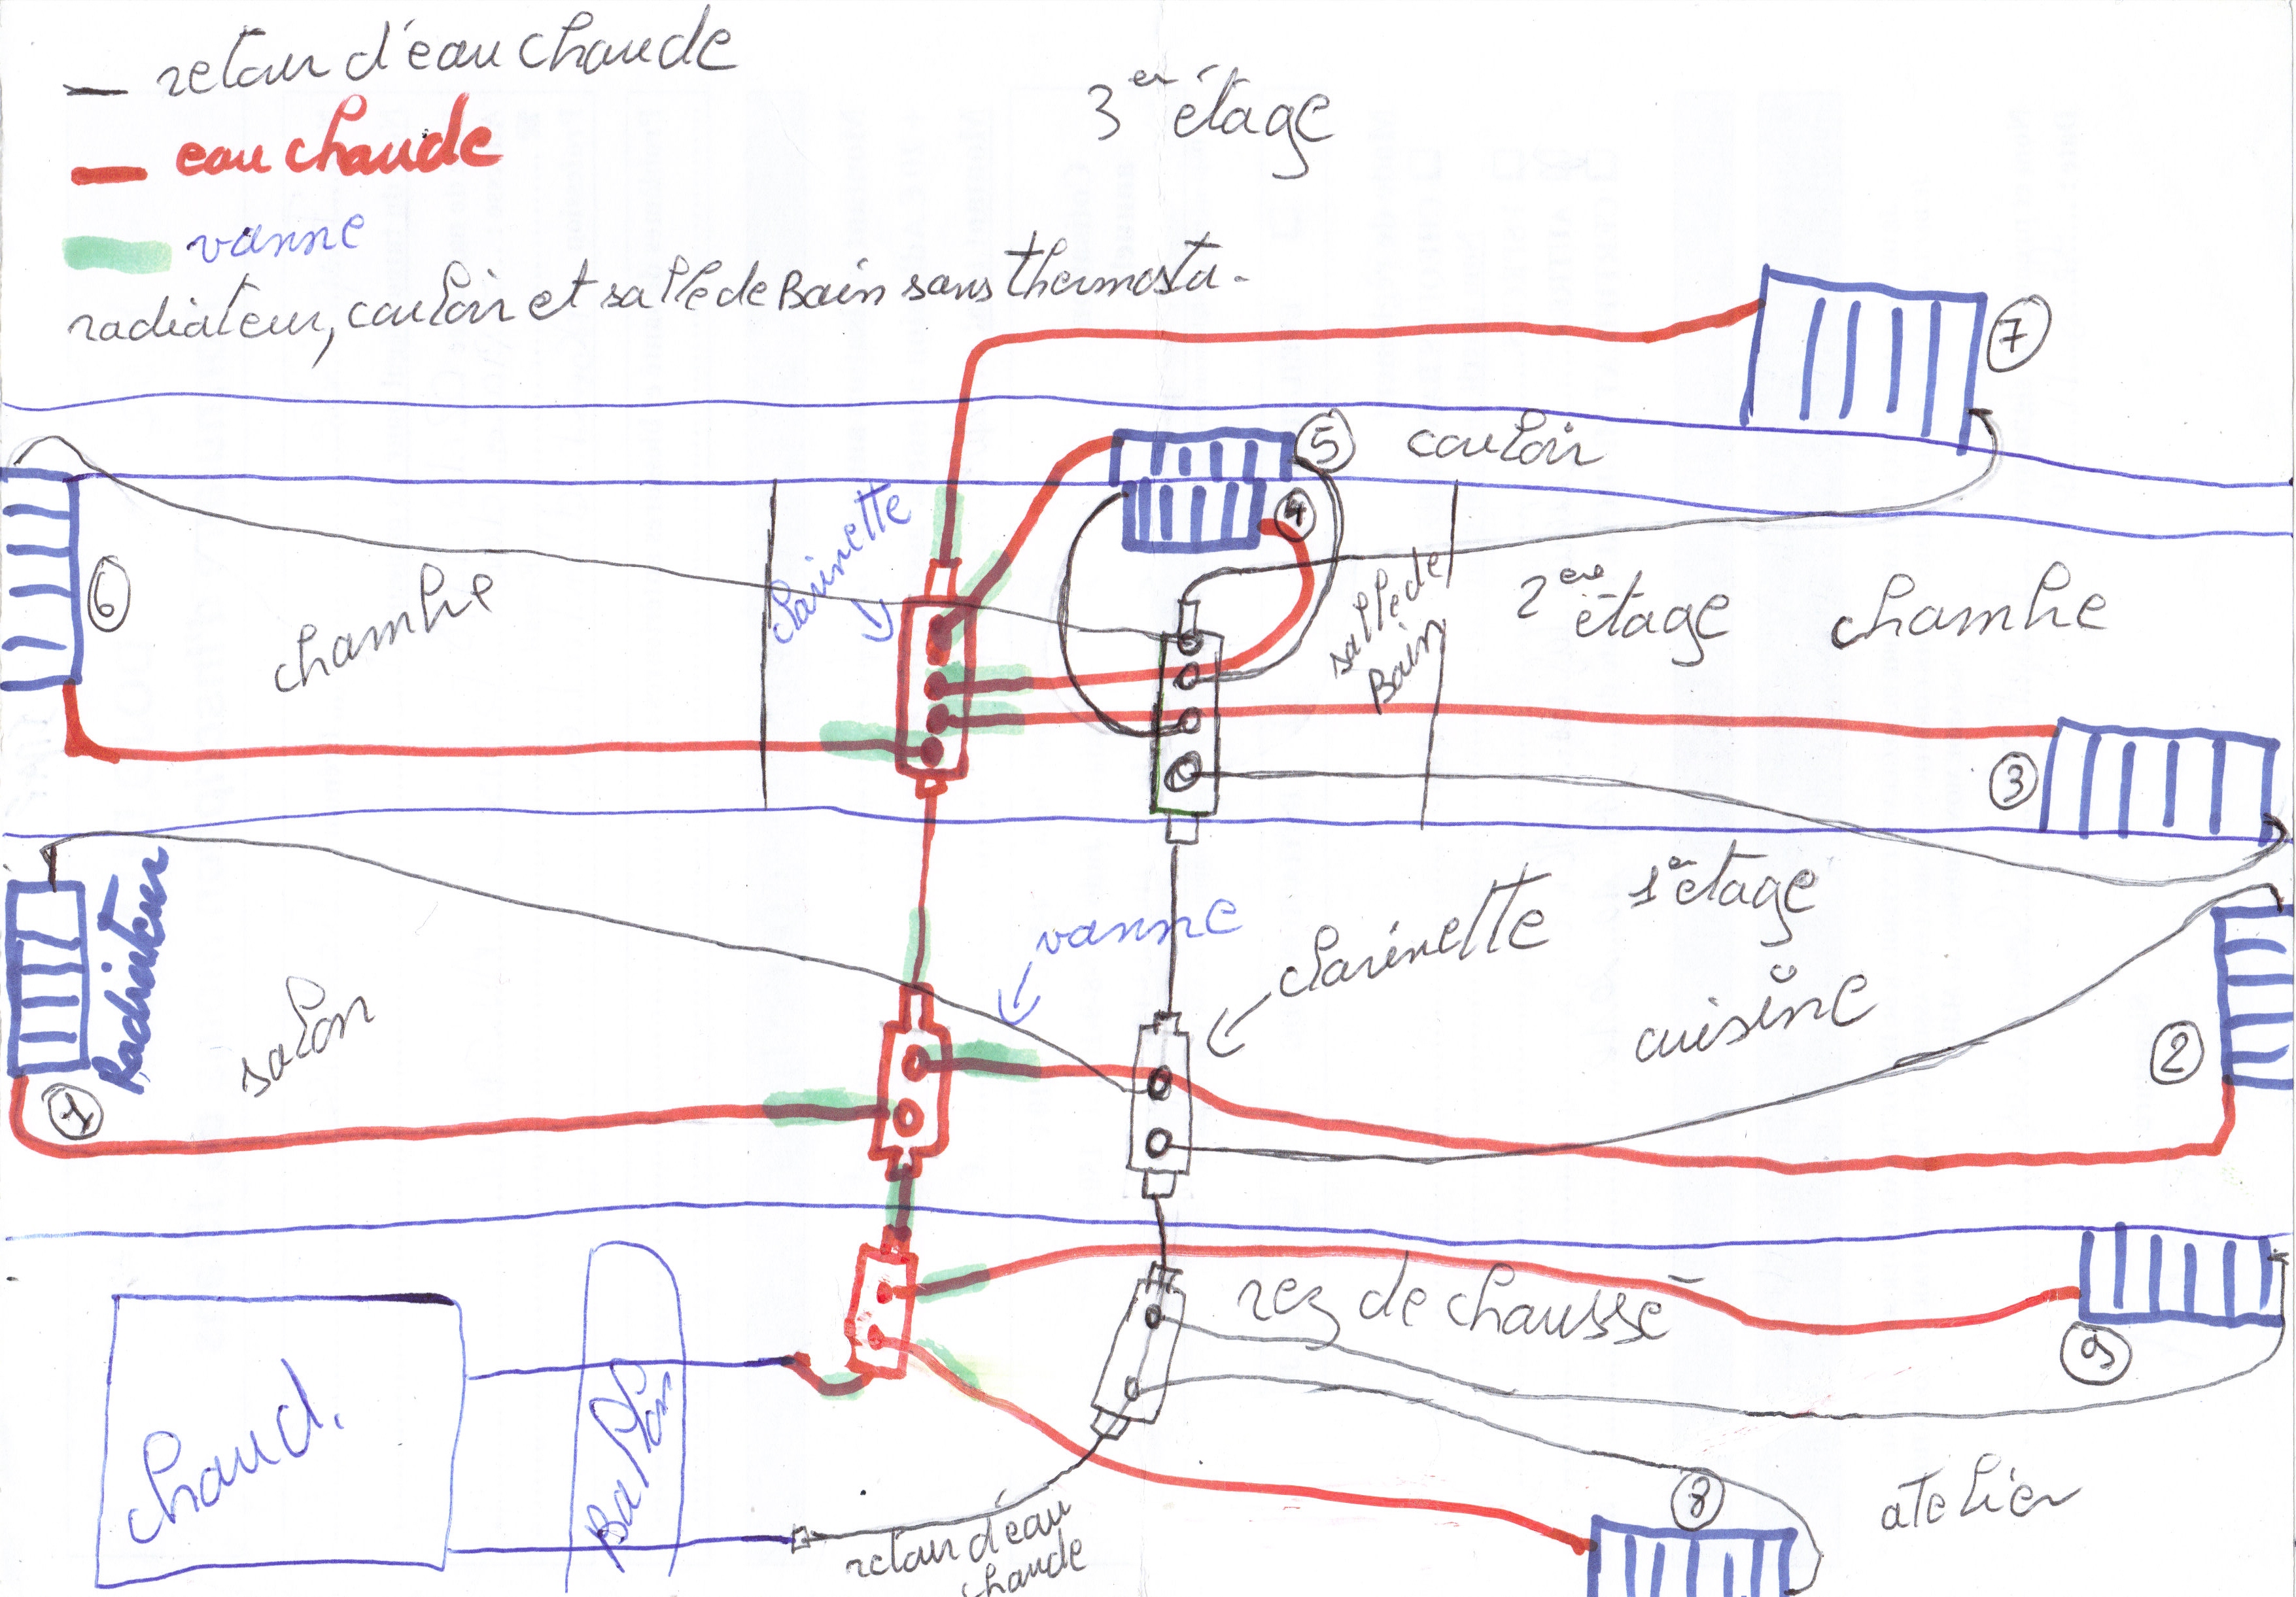 retour d'eau chaude
eau chaude
vanne
radiateur, couloir et salle de Bain sans thermosta.
3er étage
7
5
couloir
4
clarinette
6
chambre
salle de
Bain
2ère
étage
chambre
3
Radiateur
1er étage
vanne
clarinette
salon
cuisine
2
1
rez de chaussé
9
chaud.
Ballon
8
atelier
retour d'eau
chaude